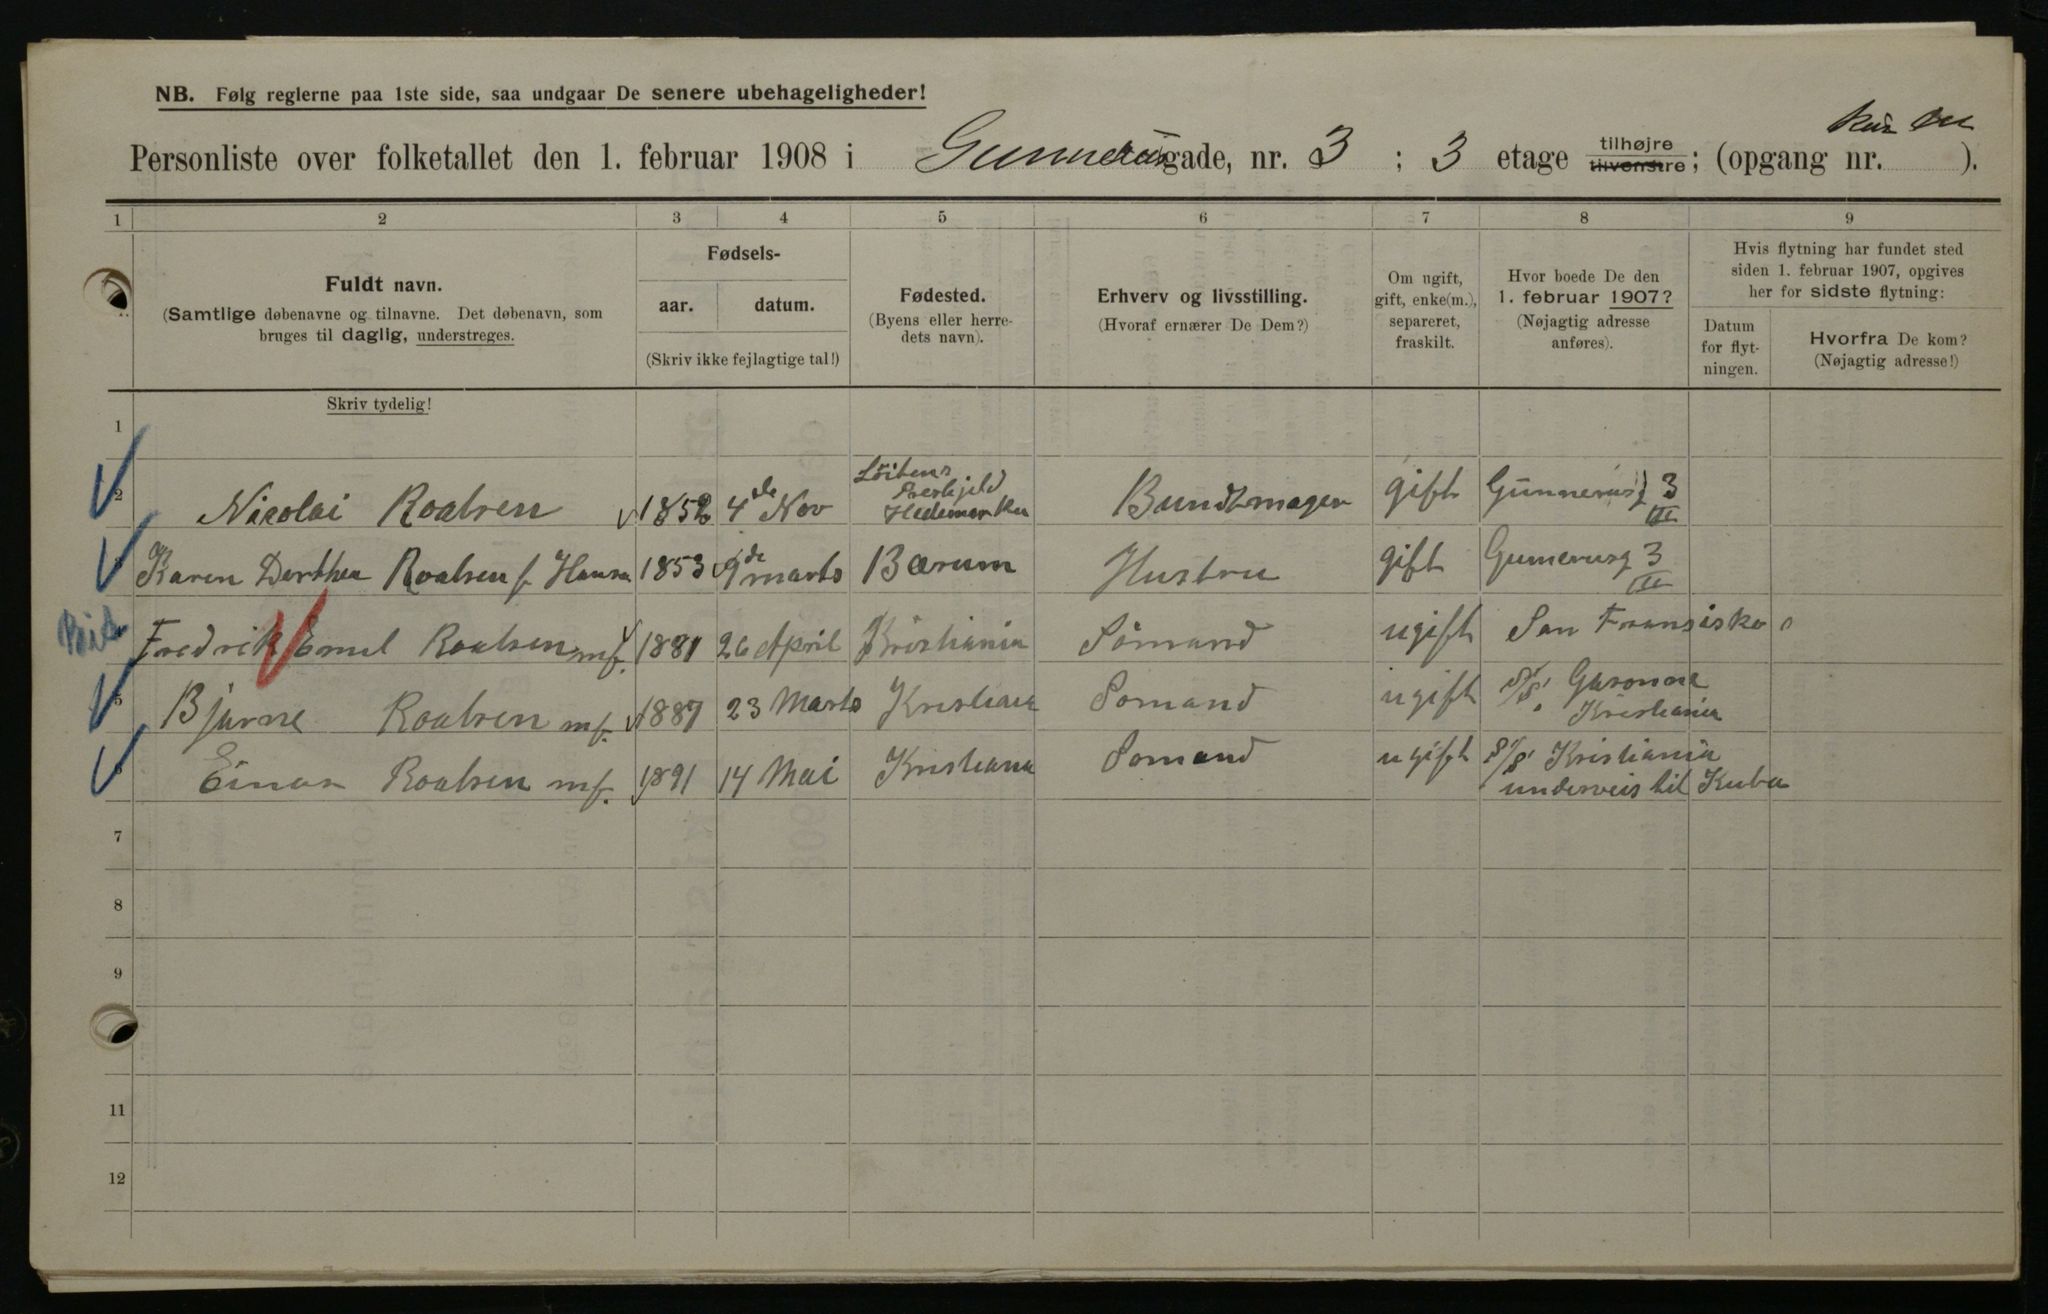 NB. Følg reglerne paa 1ste side, saa undgaar De senere ubehageligheder!
kun en
Personliste over folketallet den 1. februar 1908 i Gunnerusgade, nr. 3 ; 3 etage tilhøjre tilvenstre; (opgang nr. ).
1 2 3 4 5 6 7 8 9
Fuldt navn.
(Samtlige døbenavne og tilnavne. Det døbenavn, som
bruges til daglig, understreges.
Skriv tydelig!
Fødsels-
aar. datum.
(Skriv ikke fejlagtige tal!)
Fødested.
(Byens eller herre-
dets navn).
Erhverv og livsstilling.
(Hvoraf ernærer De Dem?)
Om ugift,
gift, enke(m.),
separeret,
fraskilt.
Hvor boede De den
1. februar 1907?
(Nøjagtig adresse
anføres).
Hvis flytning har fundet sted
siden 1. februar 1907, opgives
her for sidste flytning:
Datum
for flyt-
ningen.
Hvorfra De kom?
(Nøjagtig adresse!)
1
2 Nicolai Roalsen 1852 4de Nov Löitens Prestjeld Hedemarken Bundtmager gift Gunnerusg 3 III
Karen Dorthea Roalsen f. Hansen 1853 9de marts Bærum Hustru gift Gunnerusg 3 III
Fredrik Emil Roalsen mf. 1881 26 April Kristiania Sömand ugift San Fransisko
5 Bjarne Roalsen mf. 1887 23 Marts Kristiania Somand ugift S/S. Garonne Kristiania
6 Einar Roalsen mf. 1891 14 Mai Kristiana Somand ugift S/S Kristiania
underveis til Kuba
7
8
9
11
12